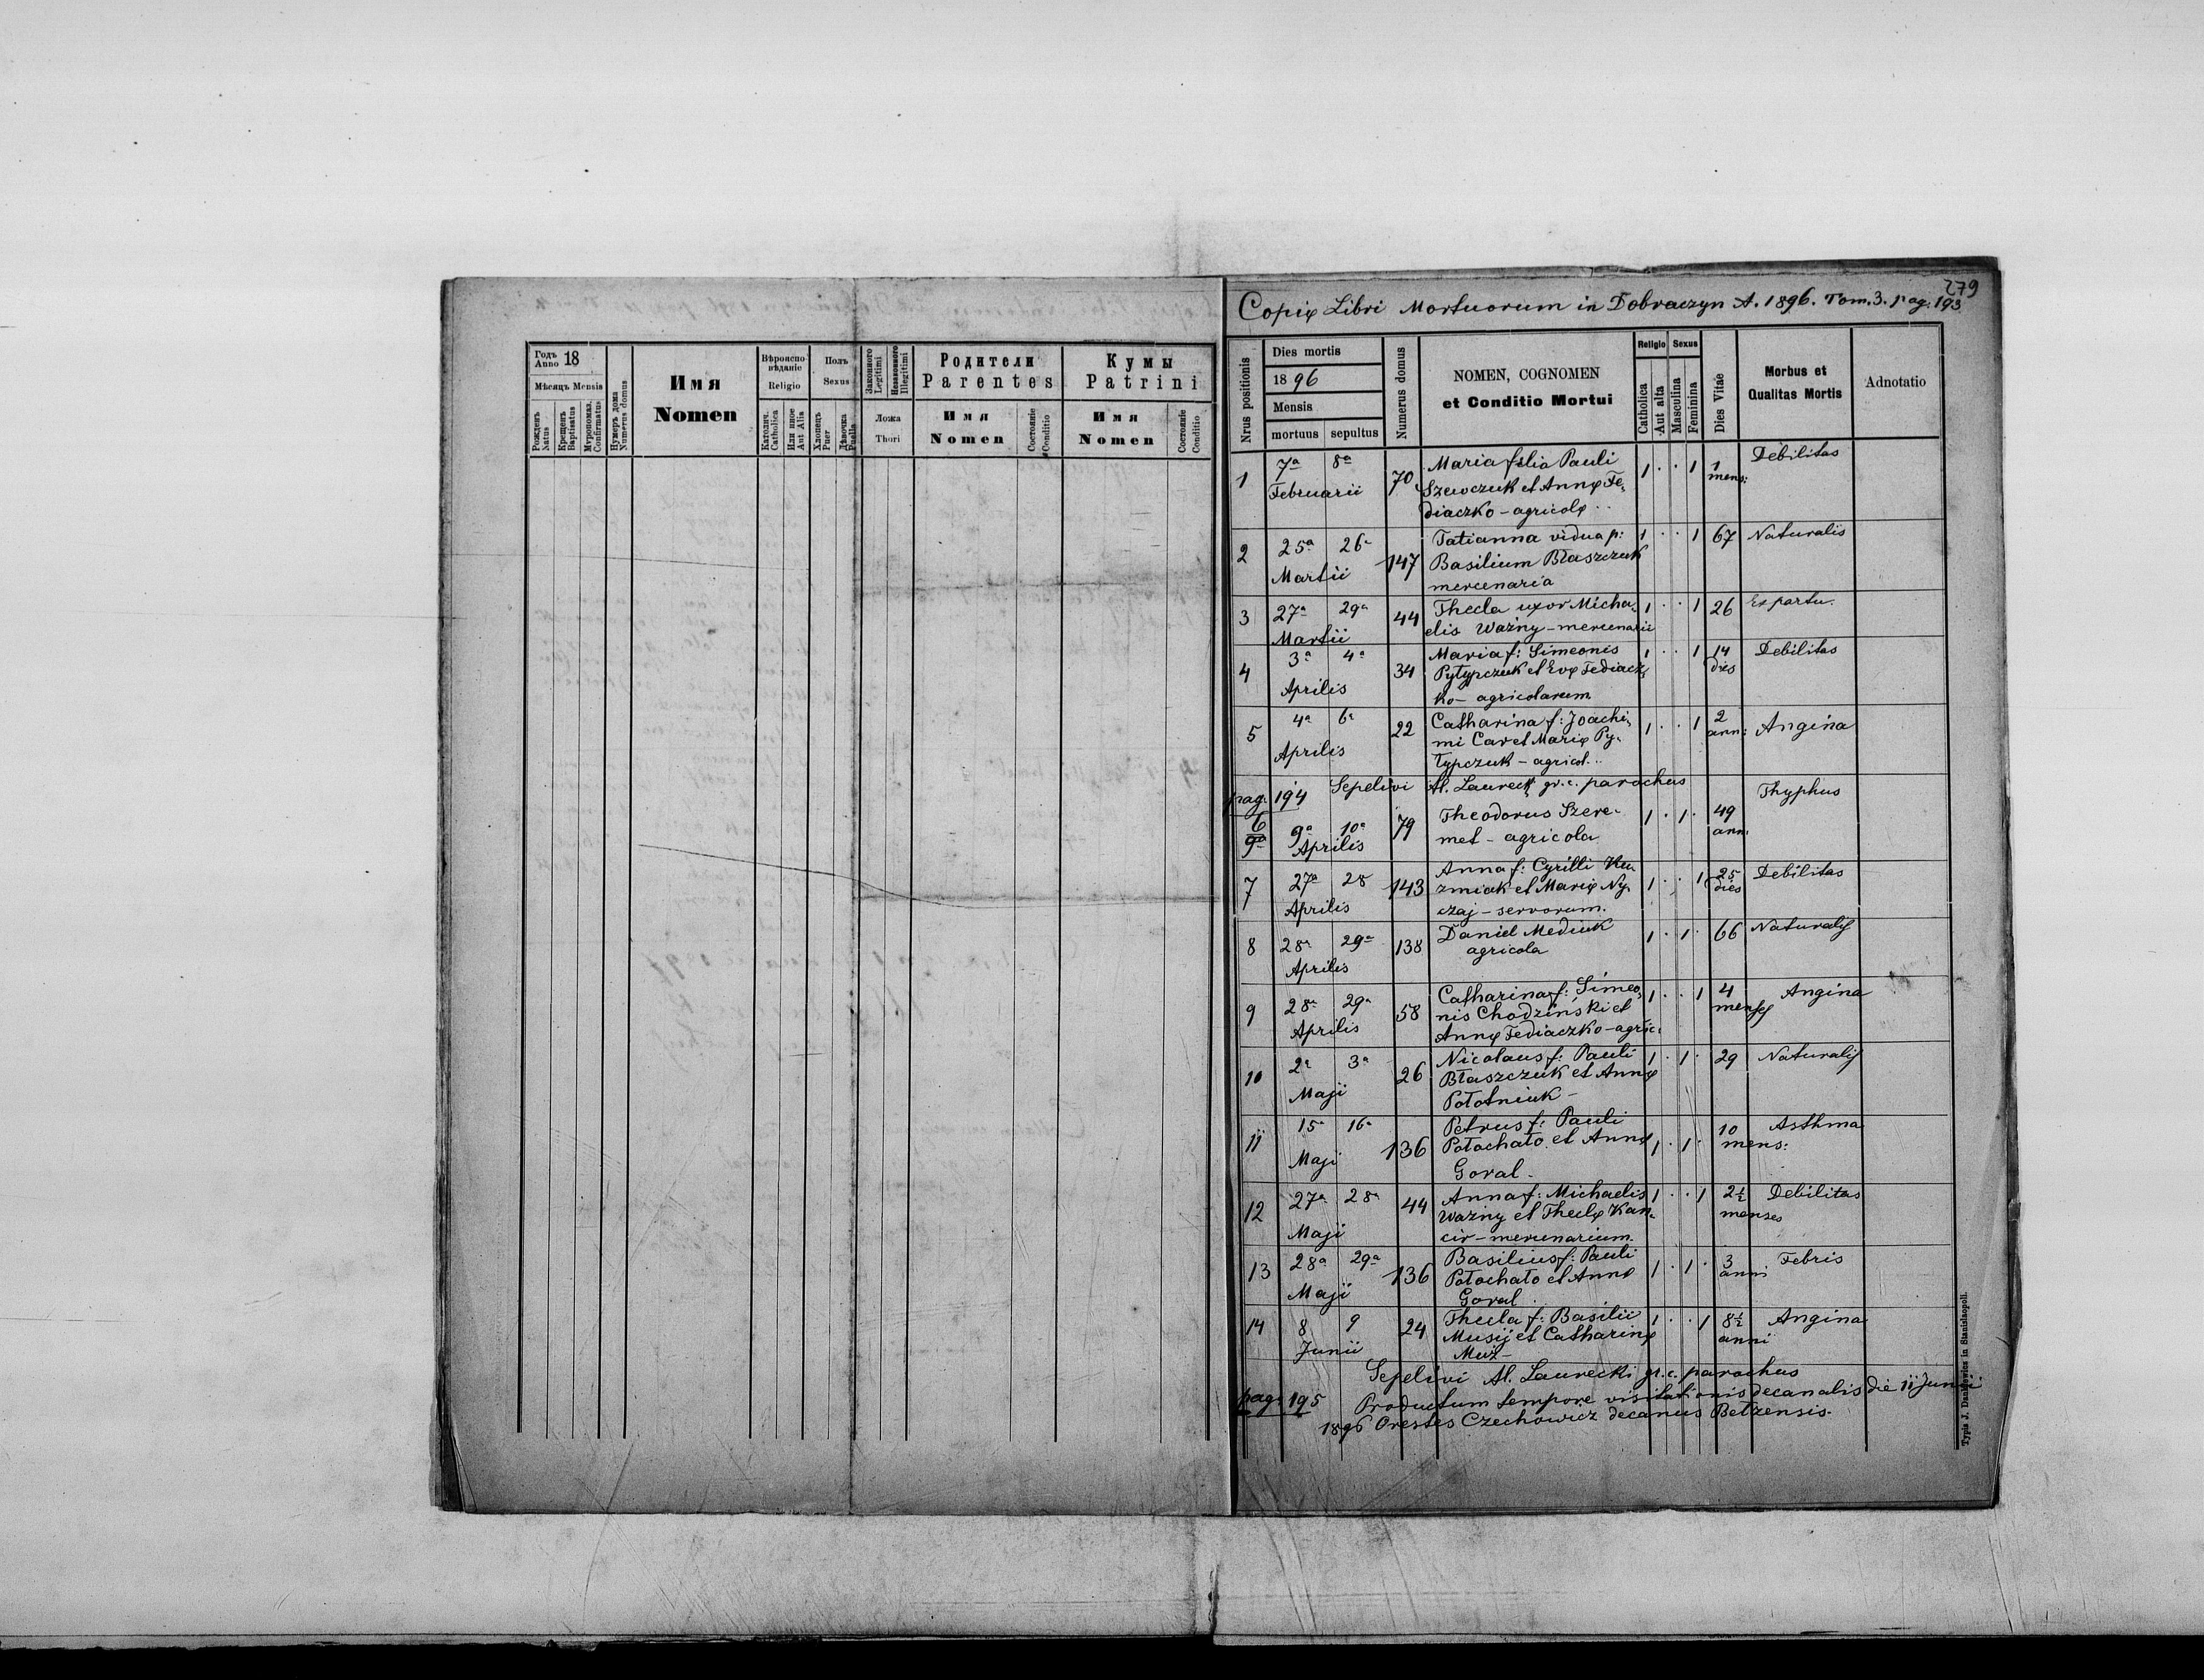 Годъ Anno 18
Мѣсяцъ Mensis
Рожденъ Natus
Крещенъ Baptisatus
Муропомаз. Confirmatus
Нумеръ дома Numerus domus
Имя Nomen
Вѣроисповѣданіе Religio
Католич. Catholica
Или иное Aut Alia
Полъ Sexus
Хлопецъ Puer
Дѣвочка Puella
Законного Legitimi
Незаконного Illegitimi
Ложа Thori
Родители Parentes
Имя Nomen
Состояніе Conditio
Кумы Patrini
Имя Nomen
Состояніе Conditio
279
Copię Libri Mortuorum in Dobraczyn A. 1896. Tom. 3. pag. 193
Nrus positionis
Dies mortis
18 96
Mensis
mortuus sepultus
Numerus domus
NOMEN, COGNOMEN
et Conditio Mortui
Religio Sexus
Catholica
Aut alta
Masculina
Feminina
Dies Vitae
Morbus et
Qualitas Mortis
Adnotatio
1 7a 8a Februarii 70 Maria filia Pauli 1 . . 1 1 mens: Debilitas
Szewczuk et Annę Fe,
diaczko - agricolę ..
2 25a 26a Martii 147 Tatianna vidua p: 1 . . 1 67 Naturalis
Basilium Błaszczuk
mercenaria
3 27a 29a Martii 44 Thecla uxor Micha, 1 . . 1 26 Ex partu.
elis Ważny - mercenarii
4 3a 4a Aprilis 34 Maria f: Simeonis 1 . . 1 14 dies Debilitas
Pyłypczuk et Evę Fediacz,
ko - agricolarum
5 4a 6a Aprilis 22 Catharina f: Joachi, 1 . . 1 2 ann: Angina
mi Car et Marię Py,
łypczuk - agricol..
pag. 194 Sepelivi Al. Laurecki gr. c. parochus
6 9a 9a 10a Aprilis 79 Theodorus Szere- 1 . 1 . 49 ann: Thyphus
met - agricola
7 27a 28 Aprilis 143 Anna f: Cyrilli Ku, 1 . . 1 25 dies Debilitas
zmiak et Marię Ny,
czaj - servorum.
8 28a 29a Aprilis 138 Daniel Mediuk 1 . 1 . 66 Naturalis
agricola
9 28a 29a Aprilis 58 Catharina f: Simeo, 1 . . 1 4 menses Angina
nis Chodziński et
Annę Fediaczko - agric:
10 2a 3a Maji 26 Nicolaus f: Pauli 1 . 1 . 29 Naturalis
Błaszczuk et Annę
Połotniuk -
11 15a 16a Maji 136 Petrus f: Pauli 1 . 1 . 10 mens: Asthma
Potochato et Annę
Goral -
12 27a 28a Maji 44 Anna f: Michaelis 1 . . 1 2½ menses Debilitas
Ważny et Theclę Kan,
cir - mercenarium.
13 28a 29a Maji 136 Basilius f: Pauli 1 . 1 . 3 anni Febris
Potochato et Annę
Goral
14 8 9 Junii 24 Thecla f: Basilii 1 . . 1 8½ anni Angina
Musij et Catharinę
Muż -
Sepelivi Al. Laurecki gr. c. parochus
pag. 195 Productum tempore visitationis decanalis die 11 Junii
1896 Orestes Czechowicz decanus Bełzensis.
Typis J. Dankiewics in Stanislaopoli.